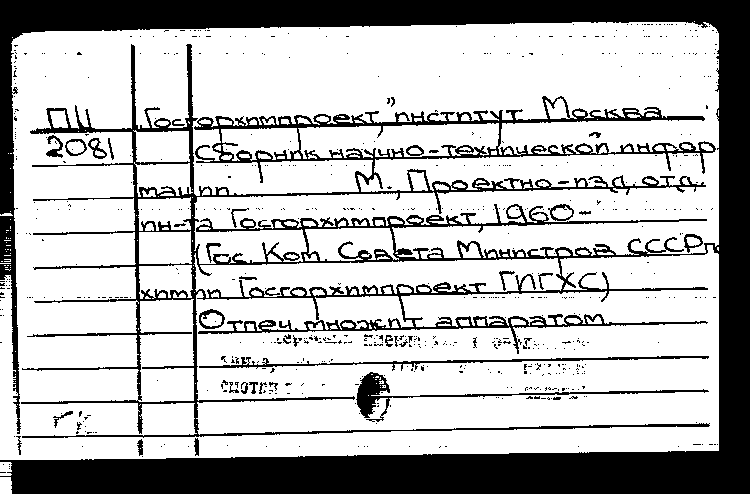 П11 „Госгорхимпроект,” институт Москва
2081 Сборник научно-технической инфор-
мации. М., Проектно-изд. отд.
ин-та Госгорхимпроект, 1960-
(Гос. Ком. Совета Министров СССР по
химии Госгорхимпроект ГИГХС)
Отпеч. множит аппаратом
смотри